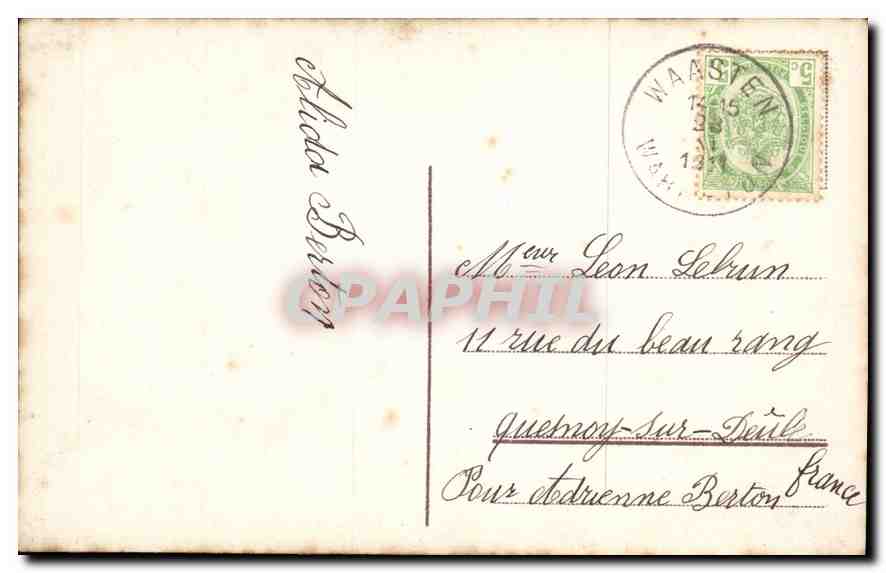 Alida Berton
WAASTEN
14-15
1911
5 c
CPAPHIL
Meur Leon Lebrun
11 rue du beau rang
quesnoy-sur-Deûle
France
Pour Adrienne Berton